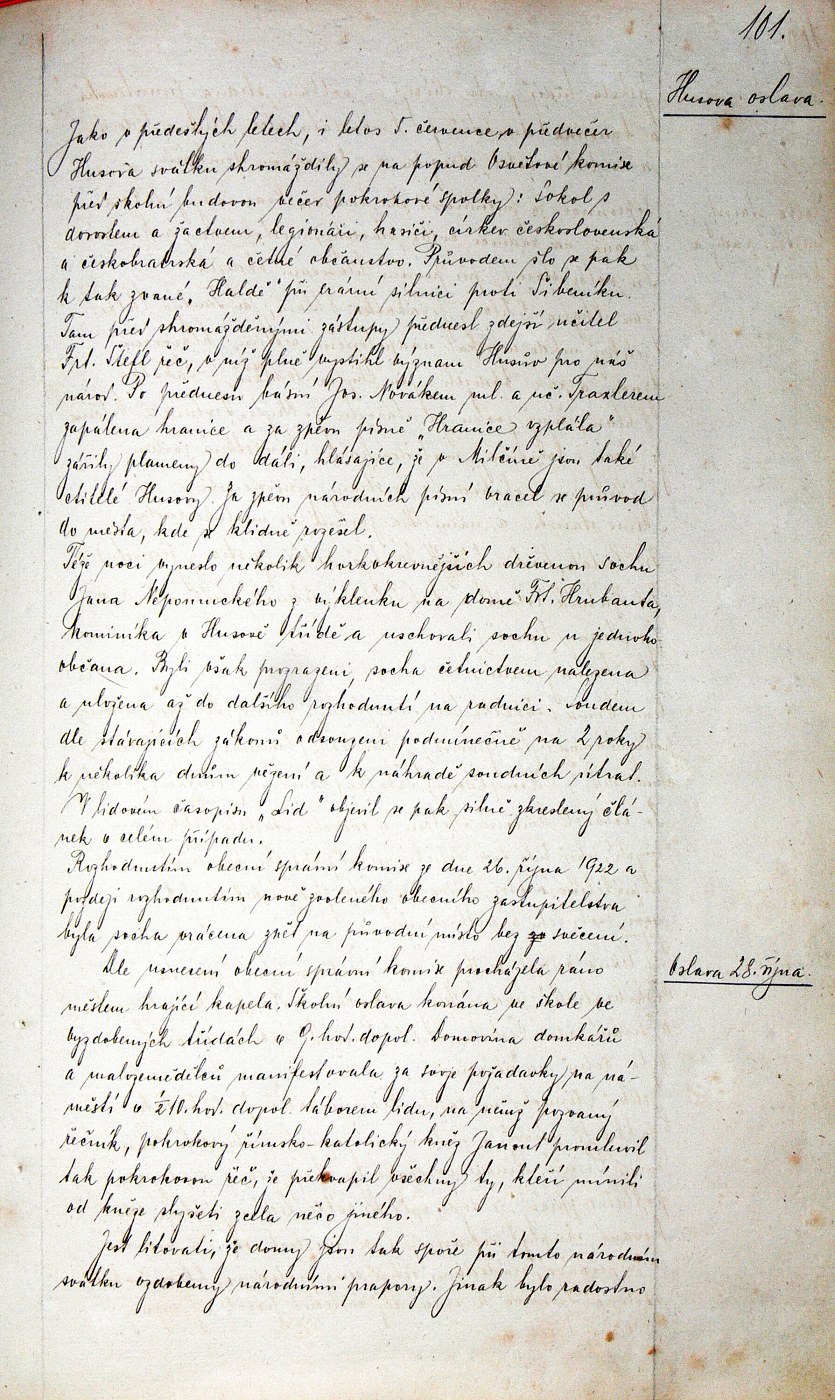 101.
Husova oslava.
Jako v předešlých letech, i letos 5. července v předvečer
Husova svátku shromáždily se na popud Osvětové komise
před školní budovou večer pokrokové spolky: Sokol s
dorostem a žactvem, legionáři, hasiči, církev československá
a českobratrská a četné občanstvo. Průvodem šlo se pak
k tak zvané „Haldě" při erární silnici proti Šibeníku.
Tam před shromážděnými zástupy přednesl zdejší učitel
Frt. Štefl řeč, v níž plně vystihl význam Husův pro náš
národ. Po přednesu básní Jos. Novákem ml. a uč. Traxlerem
zapálena hranice a za zpěvu písně „Hranice vzplála"
zářily plameny do dáli, hlásajíce, že v Milčíně jsou také
ctitelé Husovy. Za zpěvu národních písní vracel se průvod
do města, kde se klidně rozešel.
Téže noci vyneslo několik horkokrevnějších dřevenou sochu
Jana Nepomuckého z výklenku na domě Frt. Hrubanta,
kominíka v Husově třídě a uschovali sochu u jednoho
občana. Byli však prozrazeni, socha četnictvem nalezena
a uložena až do dalšího rozhodnutí na radnici. Soudem
dle stávajících zákonů odsouzeni podmínečně na 2 roky
k několika dnům vězení a k náhradě soudních útrat.
V lidovém časopisu „Lid" objevil se pak silně zkreslený člá-
nek o celém případu.
Rozhodnutím obecní správní komise ze dne 26. října 1922 a
později rozhodnutím nově zvoleného obecního zastupitelstva
byla socha vrácena zpět na původní místo bez svěcení.
Oslava 28. října.
Dle usnesení obecní správní komise procházela ráno
městem hrající kapela. Školní oslava konána ve škole ve
vyzdobených třídách v 9. hod. dopol. Domovina domkářů
a malozemědělců manifestovala za svoje požadavky na ná-
městí v ½10. hod. dopol. táborem lidu, na němž pozvaný
řečník, pokrokový římsko-katolický kněz Janout promluvil
tak pokrokovou řeč, že překvapil všechny ty, kteří mínili
od kněze slyšeti zcela něco jiného.
Jest litovati, že domy jsou tak spoře při tomto národním
svátku vyzdobeny národními prapory. Jinak bylo radostno